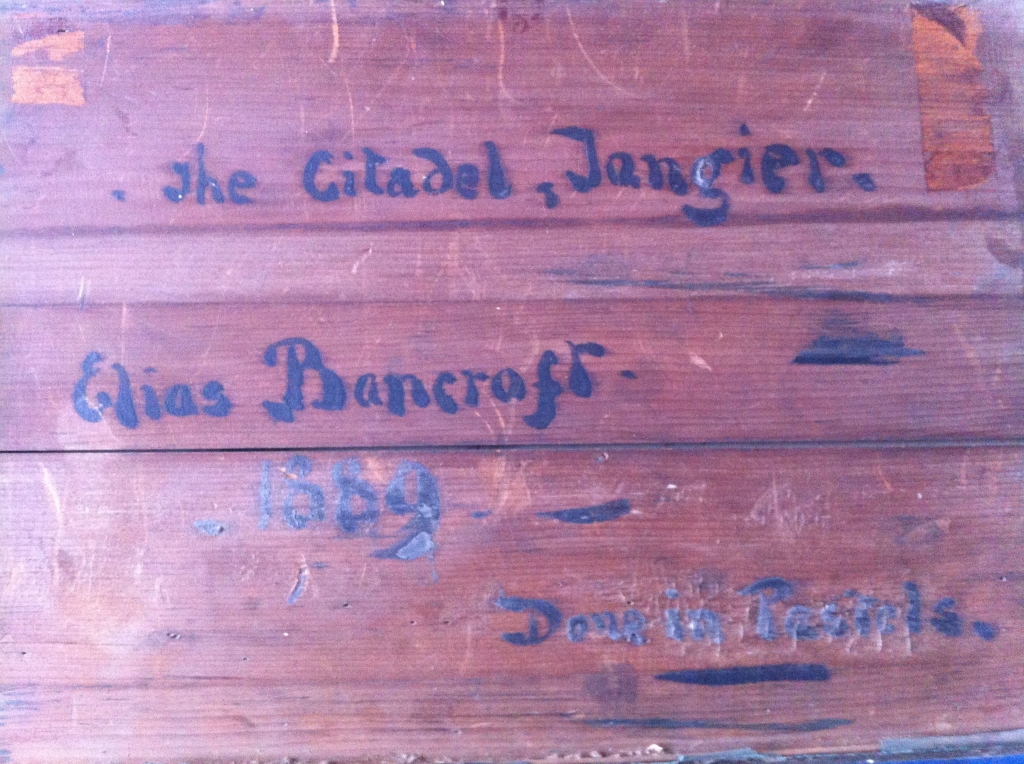 The Citadel, Tangier.
Elias Bancroft.
1889
Done in Pastels.